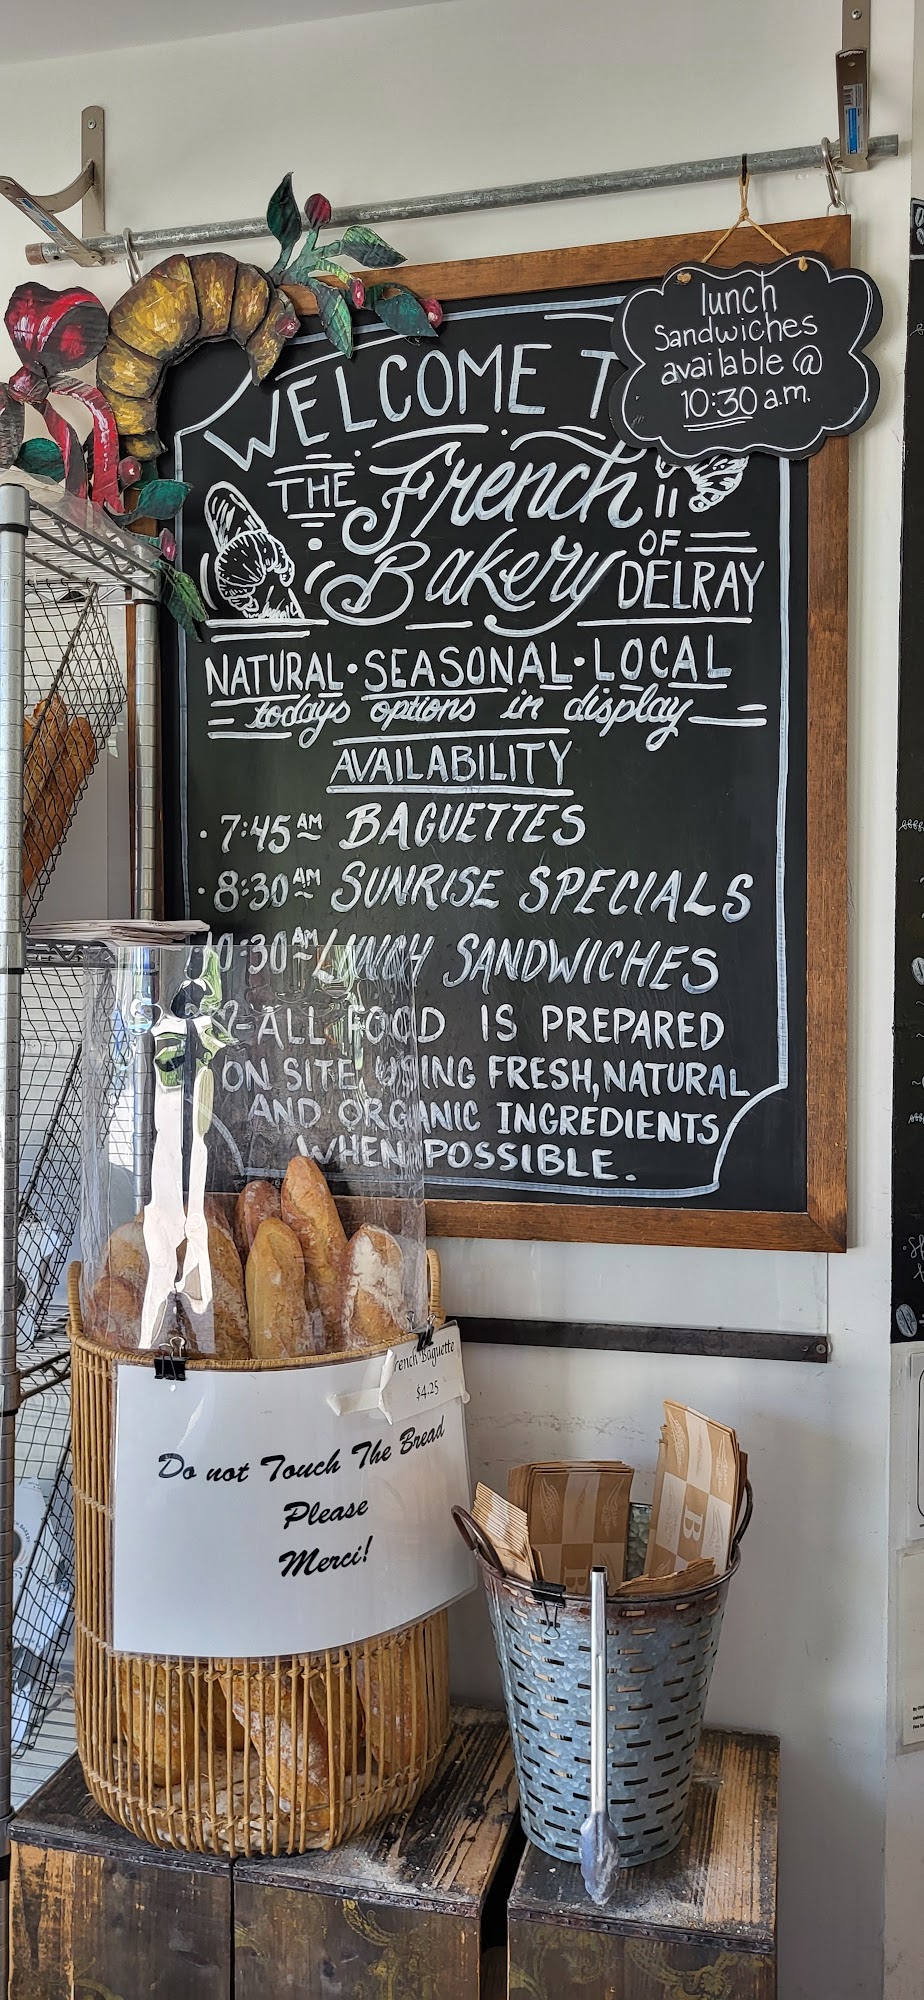 lunch
Sandwiches
available @
10:30 a.m.
WELCOME T
THE French
Bakery OF
DELRAY
NATURAL • SEASONAL • LOCAL
todays options in display
AVAILABILITY
• 7:45 AM BAGUETTES
• 8:30 AM SUNRISE SPECIALS
0:30 AM LUNCH SANDWICHES
ALL FOOD IS PREPARED
ON SITE USING FRESH, NATURAL
AND ORGANIC INGREDIENTS
WHEN POSSIBLE.
rench Baguette
$4.25
Do not Touch The Bread
Please
Merci!
B